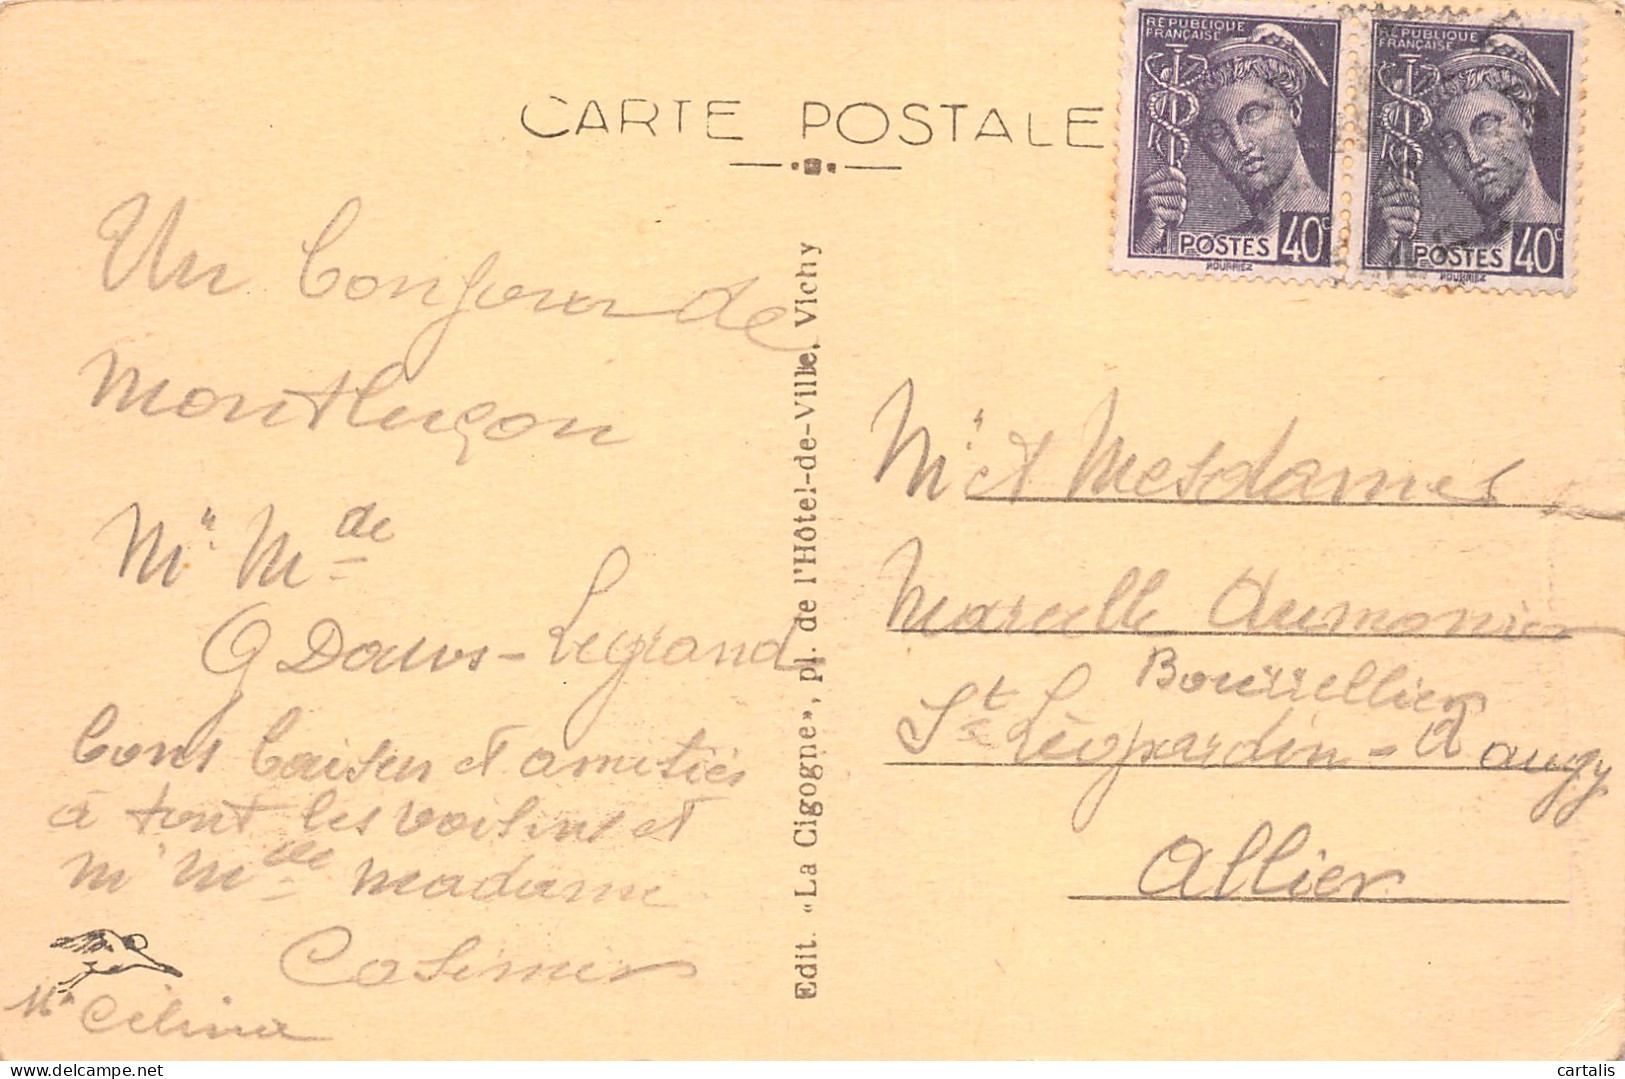 CARTE POSTALE
RÉPUBLIQUE
FRANÇAISE
POSTES 40c
RÉPUBLIQUE
FRANÇAISE
POSTES 40c
Un bonjour de
Montluçon
Mr Mde
G Daus-Legrand
bons baisers et amitiés
à tout les voisins et
Mr Mde Madame
Casimir
Me Célina
Edit. «La Cigogne», pl. de l'Hôtel-de-Ville, Vichy
Mr et Mesdames
Marcelle Aumonier
St Léopardin-d'augy
Allier
delcampe.net
cartalis